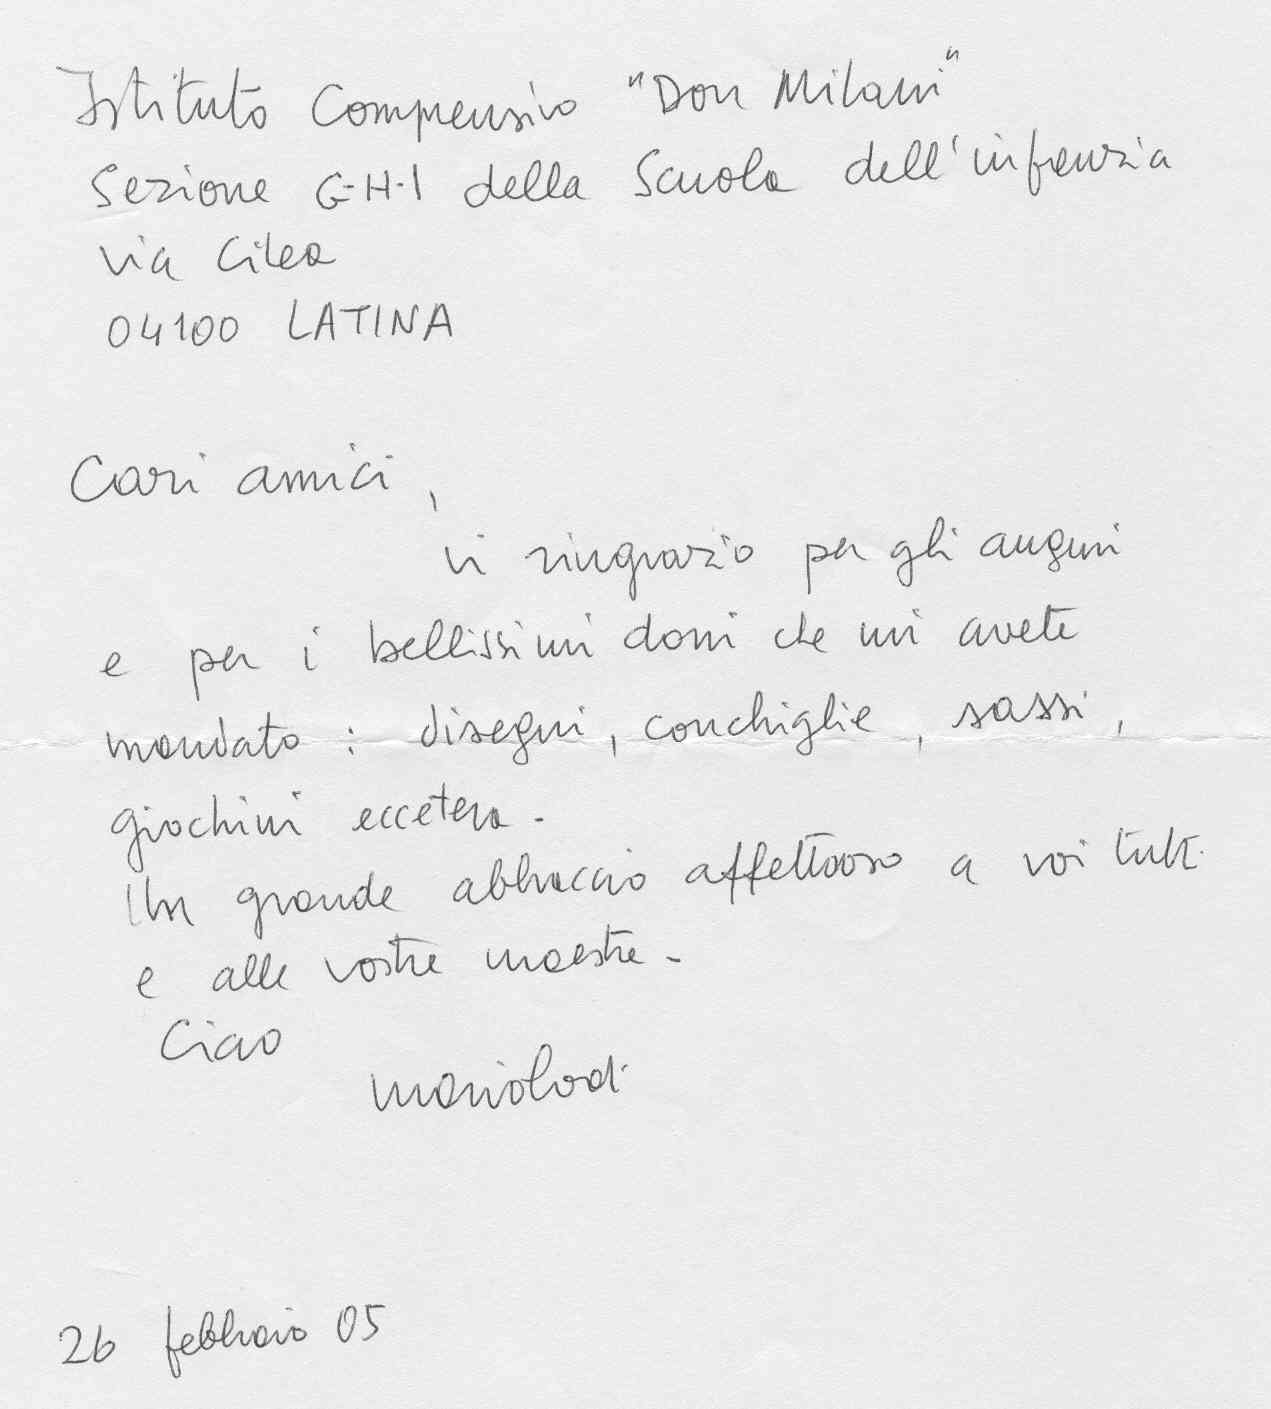 Istituto Comprensivo "Don Milani"
Sezione G-H-I della Scuola dell'infanzia
via Cilea
04100 LATINA
Cari amici,
vi ringrazio per gli auguri
e per i bellissimi doni che mi avete
mandato: disegni, conchiglie, sassi,
giochini eccetera.
Un grande abbraccio affettuoso a voi tutti
e alle vostre maestre.
Ciao
Mario Lodi
26 febbraio 05